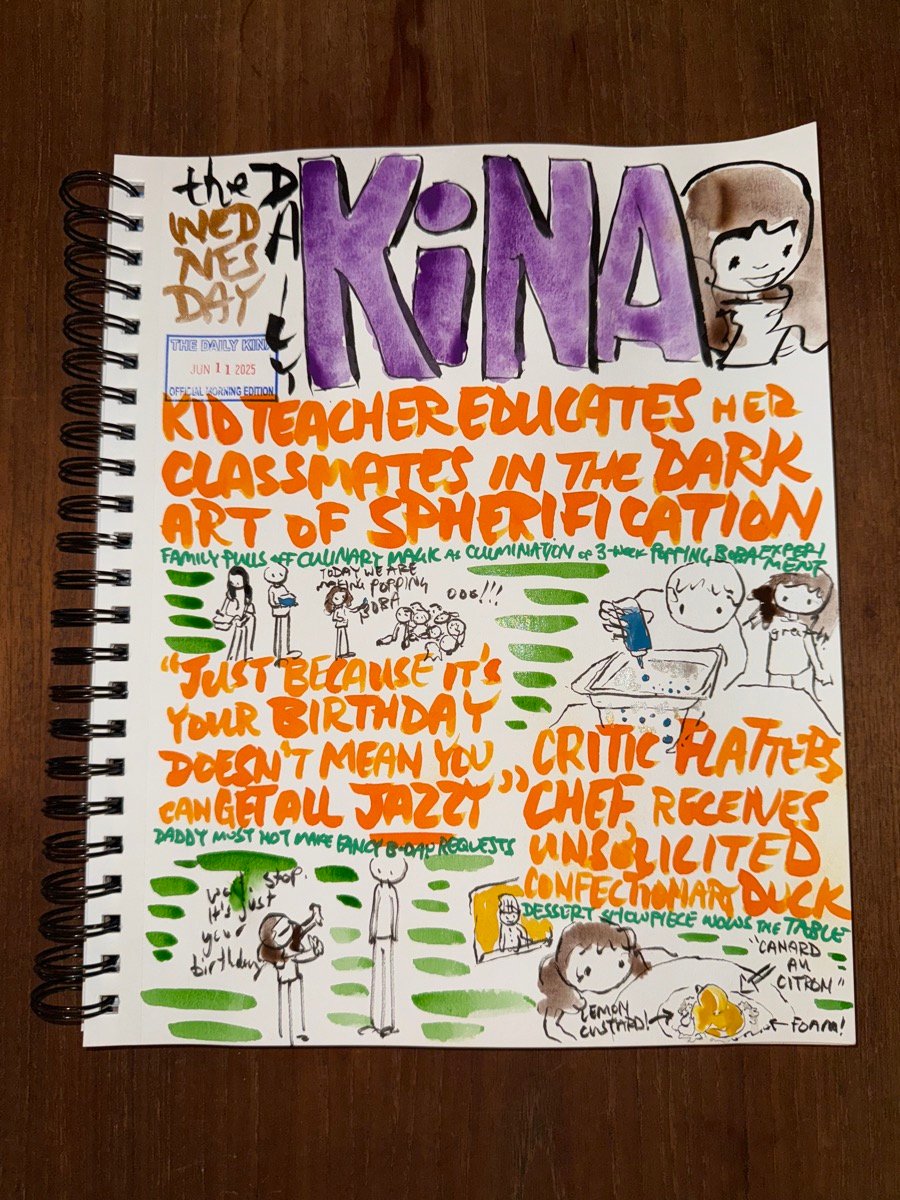 the DAILY KiNA
WED
NES
DAY
THE DAILY KINA
JUN 11 2025
OFFICIAL MORNING EDITION
KID TEACHER EDUCATES HER
CLASSMATES IN THE DARK
ART OF SPHERIFICATION
FAMILY PULLS OFF CULINARY MAGIC AS CULMINATION OF 3-WEEK POPPING BOBA EXPERI
MENT
TODAY WE ARE
MAKING POPPING
BOBA
OOG!!!
"JUST BECAUSE IT'S
YOUR BIRTHDAY
DOESN'T MEAN YOU
CAN GET ALL JAZZY"
DADDY MUST NOT MAKE FANCY B-DAY REQUESTS
stop.
it's just
your
birthday
CRITIC FLATTERS
CHEF, RECEIVES
UNSOLICITED
CONFECTIONARY DUCK
DESSERT SHOWPIECE WOWS THE TABLE
"CANARD
AU
CITRON"
LEMON
CUSTARD!
FOAM!